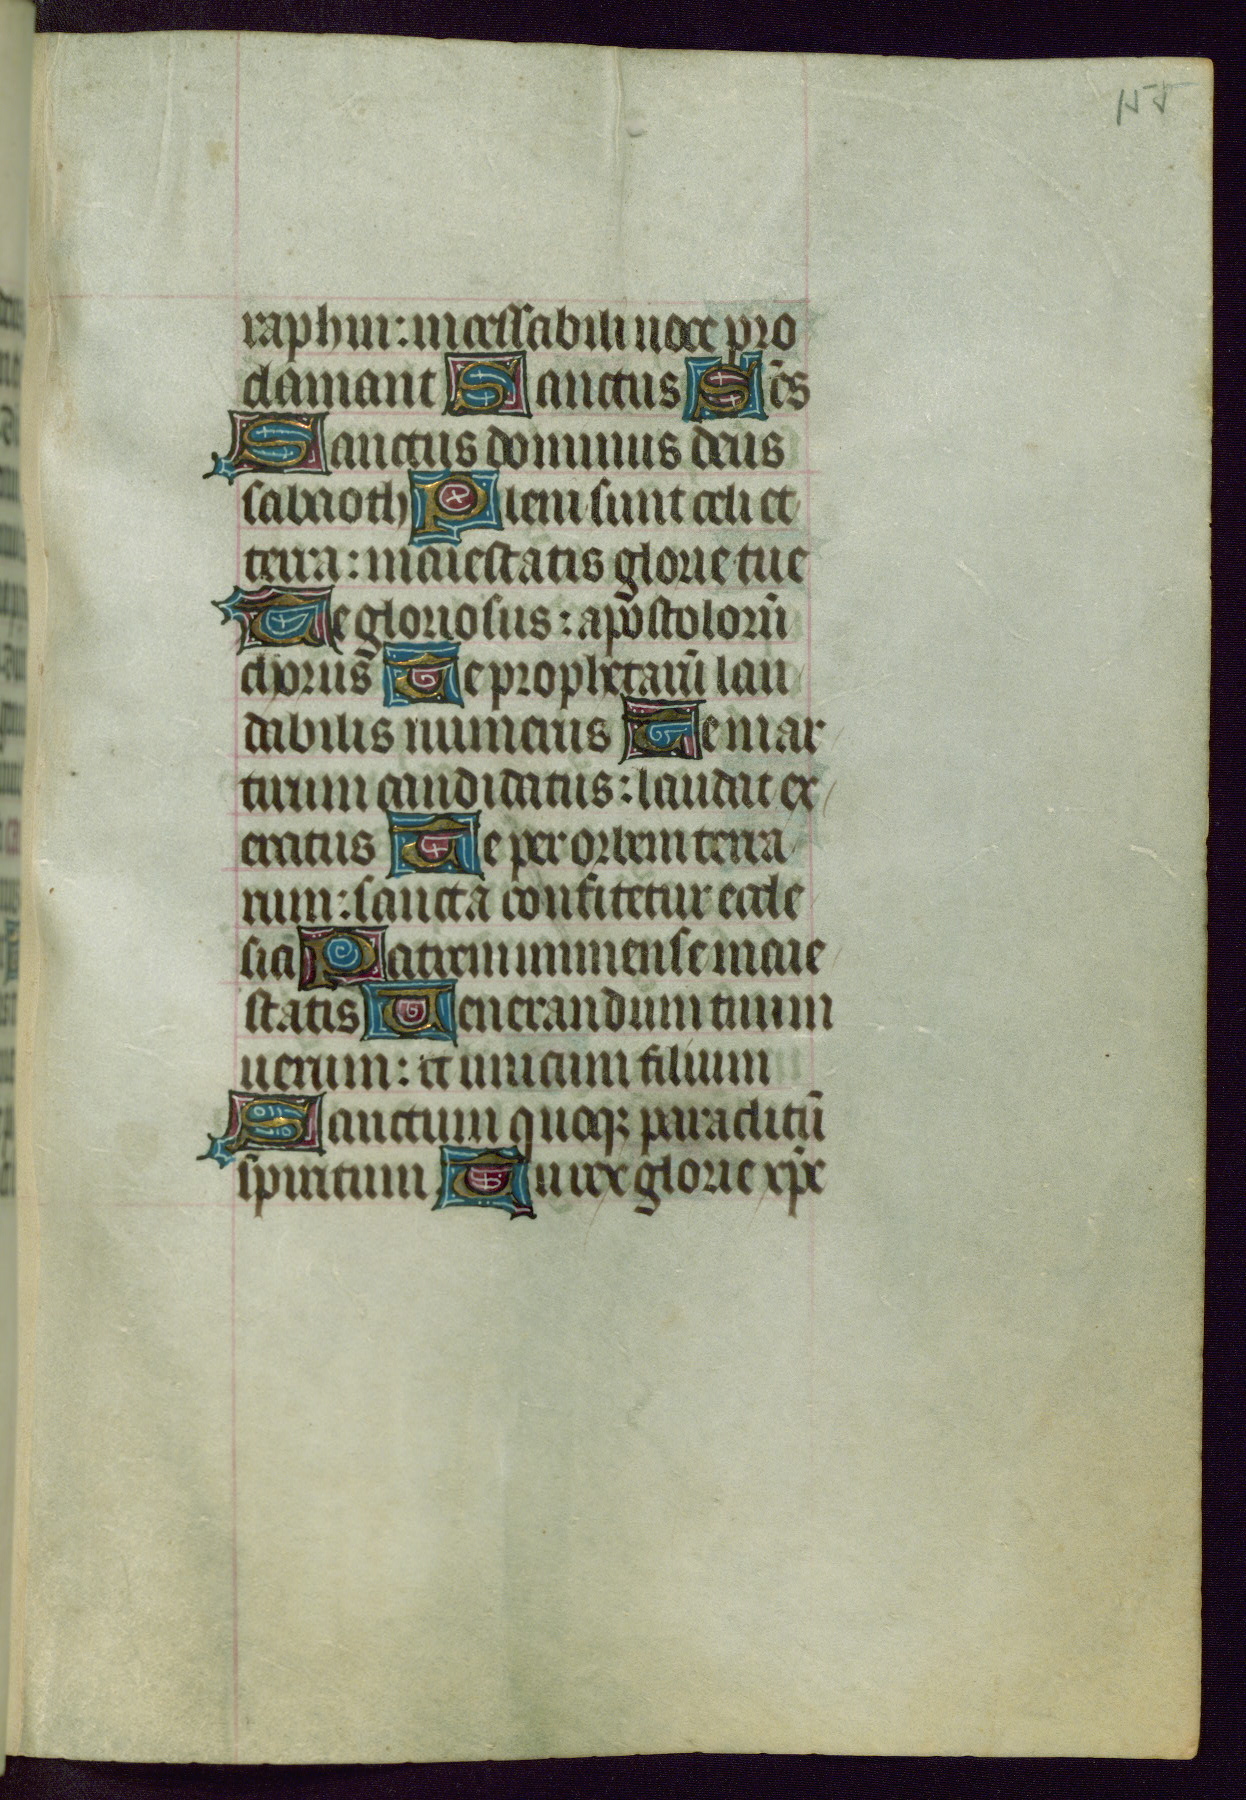 155
raphin: incessabili uoce pro
clamant Sanctus Sc̄s
Sanctus dominus deus
sabaoth Pleni sunt celi et
terra: maiestatis glorie tue
Te gloriosus: apostolorū
chorus Te prophetarū lau
dabilis numerus Te mar
tirum candidatus: laudat ex
ercitus Te per orbem terra
rum: sancta confitetur eccle
sia Patrem immense maie
statis Uenerandum tuum
uerum: et unicum filium
Sanctum quoq; paraclitū
spiritum Tu rex glorie xp̄e